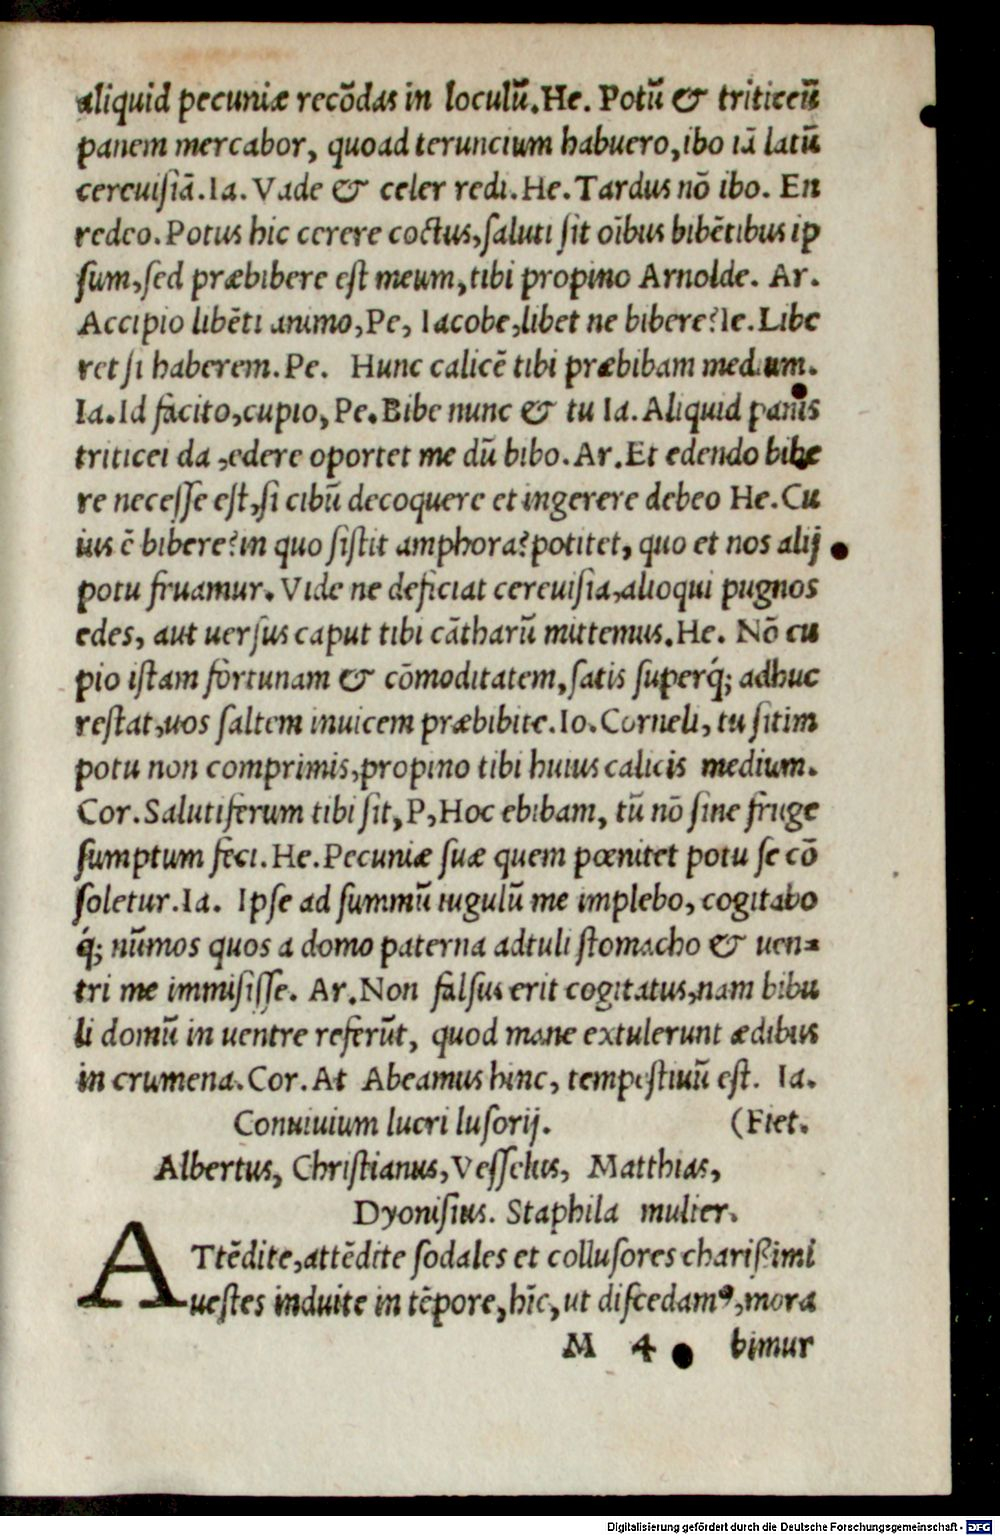 aliquid pecuniæ recõdas in loculũ. He. Potũ & triticeũ
panem mercabor, quoad teruncium habuero, ibo iã latũ
cereuisiã. Ia. Vade & celer redi. He. Tardus nõ ibo. En
redeo. Potus hic cerere coctus, saluti sit oĩbus bibẽtibus ip
sum, sed præbibere est meum, tibi propino Arnolde. Ar.
Accipio libẽti animo, Pe, Iacobe, libet ne bibere? Ie. Libe
ret si haberem. Pe. Hunc calicẽ tibi præbibam medium.
Ia. Id facito, cupio, Pe. Bibe nunc & tu Ia. Aliquid panis
triticei da, edere oportet me dũ bibo. Ar. Et edendo bibe
re necesse est, si cibũ decoquere et ingerere debeo He. Cu
ius ẽ bibere? in quo sistit amphora? potitet, quo et nos alij
potu fruamur. Vide ne deficiat cereuisia, alioqui pugnos
edes, aut uersus caput tibi cãtharũ mittemus. He. Nõ cu
pio istam fortunam & cõmoditatem, satis superq́; adhuc
restat, uos saltem inuicem præbibite. Io. Corneli, tu sitim
potu non comprimis, propino tibi huius calicis medium.
Cor. Salutiferum tibi sit, P, Hoc ebibam, tũ nõ sine fruge
sumptum feci. He. Pecuniæ suæ quem pœnitet potu se cõ
soletur. Ia. Ipse ad summũ iugulũ me implebo, cogitabo
q́; nũmos quos a domo paterna adtuli stomacho & uen=
tri me immisisse. Ar. Non falsus erit cogitatus, nam bibu
li domũ in uentre referũt, quod mane extulerunt ædibus
in crumena. Cor. At Abeamus hinc, tempestiuũ est. Ia.
Conuiuium lucri lusorij. (Fiet.
Albertus, Christianus, Vesselus, Matthias,
Dyonisius. Staphila mulier.
ATtẽdite, attẽdite sodales et collusores charißimi
uestes induite in tẽpore, hĩc, ut discedamꝰ, mora
M 4 bimur
Digitalisierung gefördert durch die Deutsche Forschungsgemeinschaft - DFG